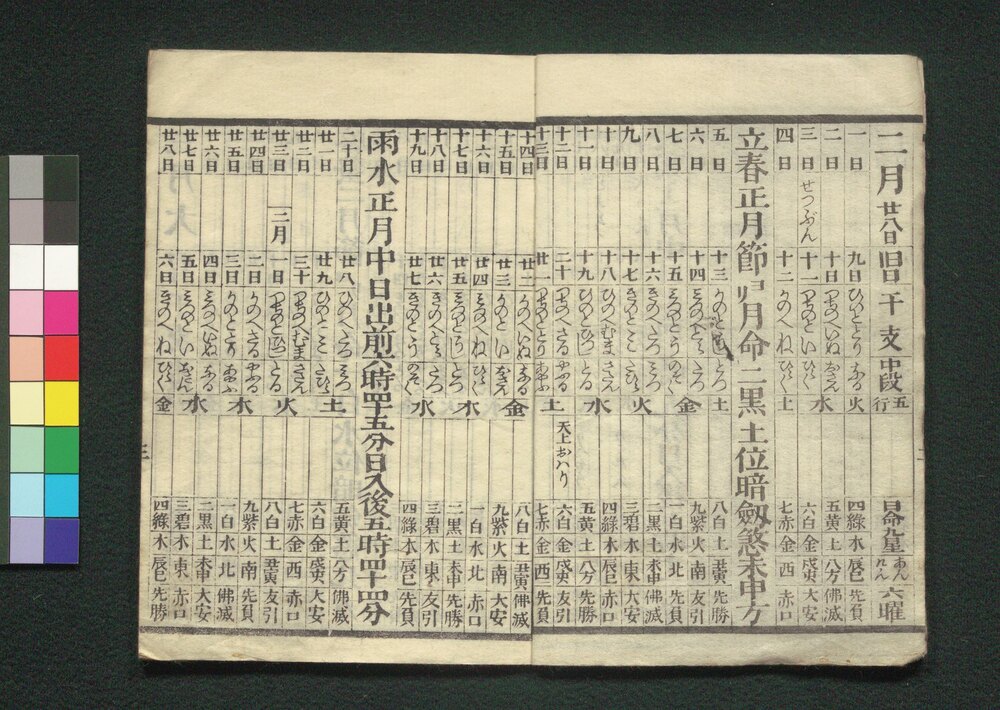 二月廿八日 旧日 干支 中段 五行 九星 あんけん 六曜
一日 九日 ひのととり なる 火 四緑木 辰巳 先負
二日 十日 つちのへいぬ 五黄土 八方 佛滅
三日 せつぶん 十一 つちのとい 水 六白金 戌亥 大安
四日 十二 かのへね 土 七赤金 西 赤口
立春正月節 月命二黒土位暗劔煞未申方
五日 十三 かのとうし 土 八白土 丑寅 先勝
六日 十四 みづのへとら 金 九紫火 南 友引
七日 十五 みづのとう 一白水 北 先負
八日 十六 きのへたつ 火 二黒土 未申 佛滅
九日 十七 きのとみ 三碧木 東 大安
十日 十八 ひのへむま 水 四緑木 辰巳 赤口
十一日 十九 ひのとひつじ 五黄土 八方 先勝
十二日 二十 つちのへさる 土 天上おハり 六白金 戌亥 友引
十三日 廿一 つちのととり 七赤金 西 先負
十四日 廿二 かのへいぬ なる 金 八白土 丑寅 佛滅
十五日 廿三 かのとい 九紫火 南 大安
十六日 廿四 みづのへね ひらく 木 一白水 北 赤口
十七日 廿五 みづのとうし とづ 二黒土 未申 先勝
十八日 廿六 きのへとら たつ 水 三碧木 東 友引
十九日 廿七 きのとう のぞく 四緑木 辰巳 先負
雨水正月中 日出前六時四十五分 日入後五時四十四分
二十日 廿八 ひのへたつ みつ 土 五黄土 八方 佛滅
廿一日 廿九 ひのとみ たひら 六白金 戌亥 大安
廿二日 三十 つちのへむま さだん 火 七赤金 西 赤口
廿三日 二月 一日 つちのとひつじ とる 八白土 丑寅 友引
廿四日 二日 かのへさる やぶる 木 九紫火 南 先負
廿五日 三日 かのととり あやふ 一白水 北 佛滅
廿六日 四日 みづのへいぬ なる 水 二黒土 未申 大安
廿七日 五日 みづのとい おさん 三碧木 東 赤口
廿八日 六日 きのへね ひらく 金 四緑木 辰巳 先勝
三